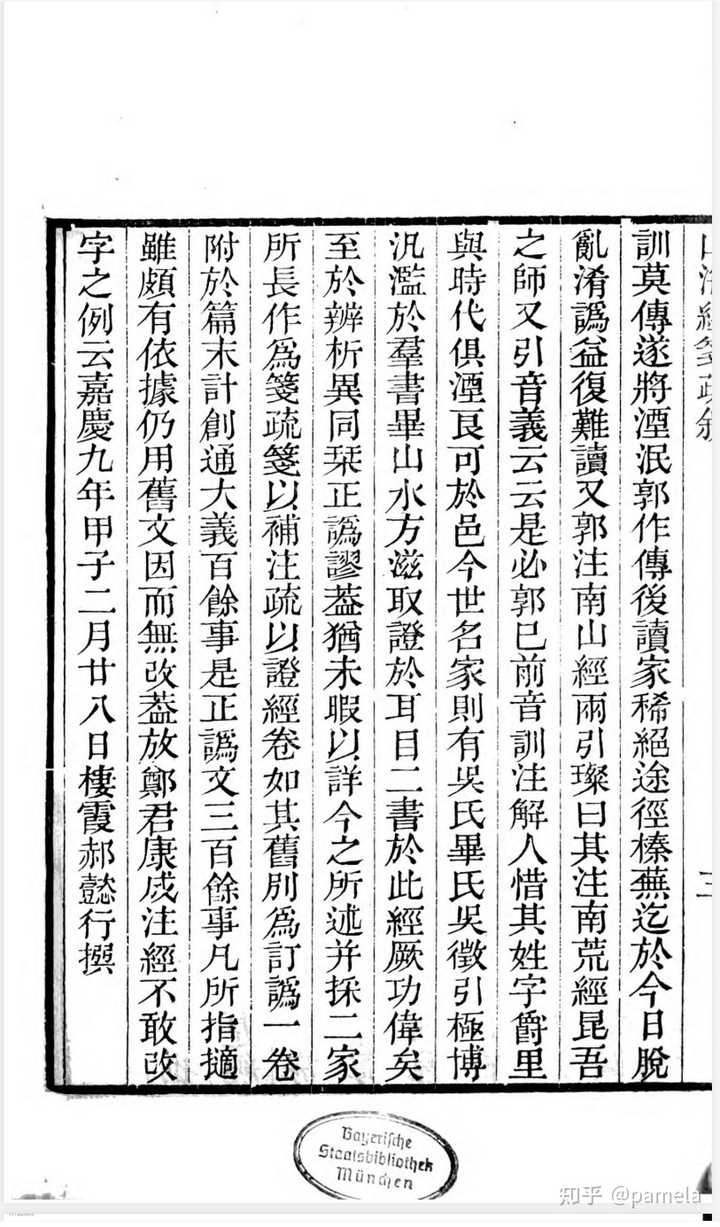 山海經箋疏敘
三
訓莫傳遂將湮泯郭作傳後讀家稀絕途徑榛蕪迄於今日脫
亂淆譌益復難讀又郭注南山經兩引璨曰其注南荒經昆吾
之師又引音義云云是必郭已前音訓注解人惜其姓字爵里
與時代俱湮良可於邑今世名家則有吳氏畢氏吳徵引極博
汎濫於羣書畢山水方滋取證於耳目二書於此經厥功偉矣
至於辨析異同栞正譌謬葢猶未暇以詳今之所述并採二家
所長作爲箋疏箋以補注疏以證經卷如其舊別爲訂譌一卷
附於篇末計創通大義百餘事是正譌文三百餘事凡所指擿
雖頗有依據仍用舊文因而無改葢放鄭君康成注經不敢改
字之例云嘉慶九年甲子二月廿八日棲霞郝懿行撰
Bayerische
Staatsbibliothek
München
知乎 @pamela